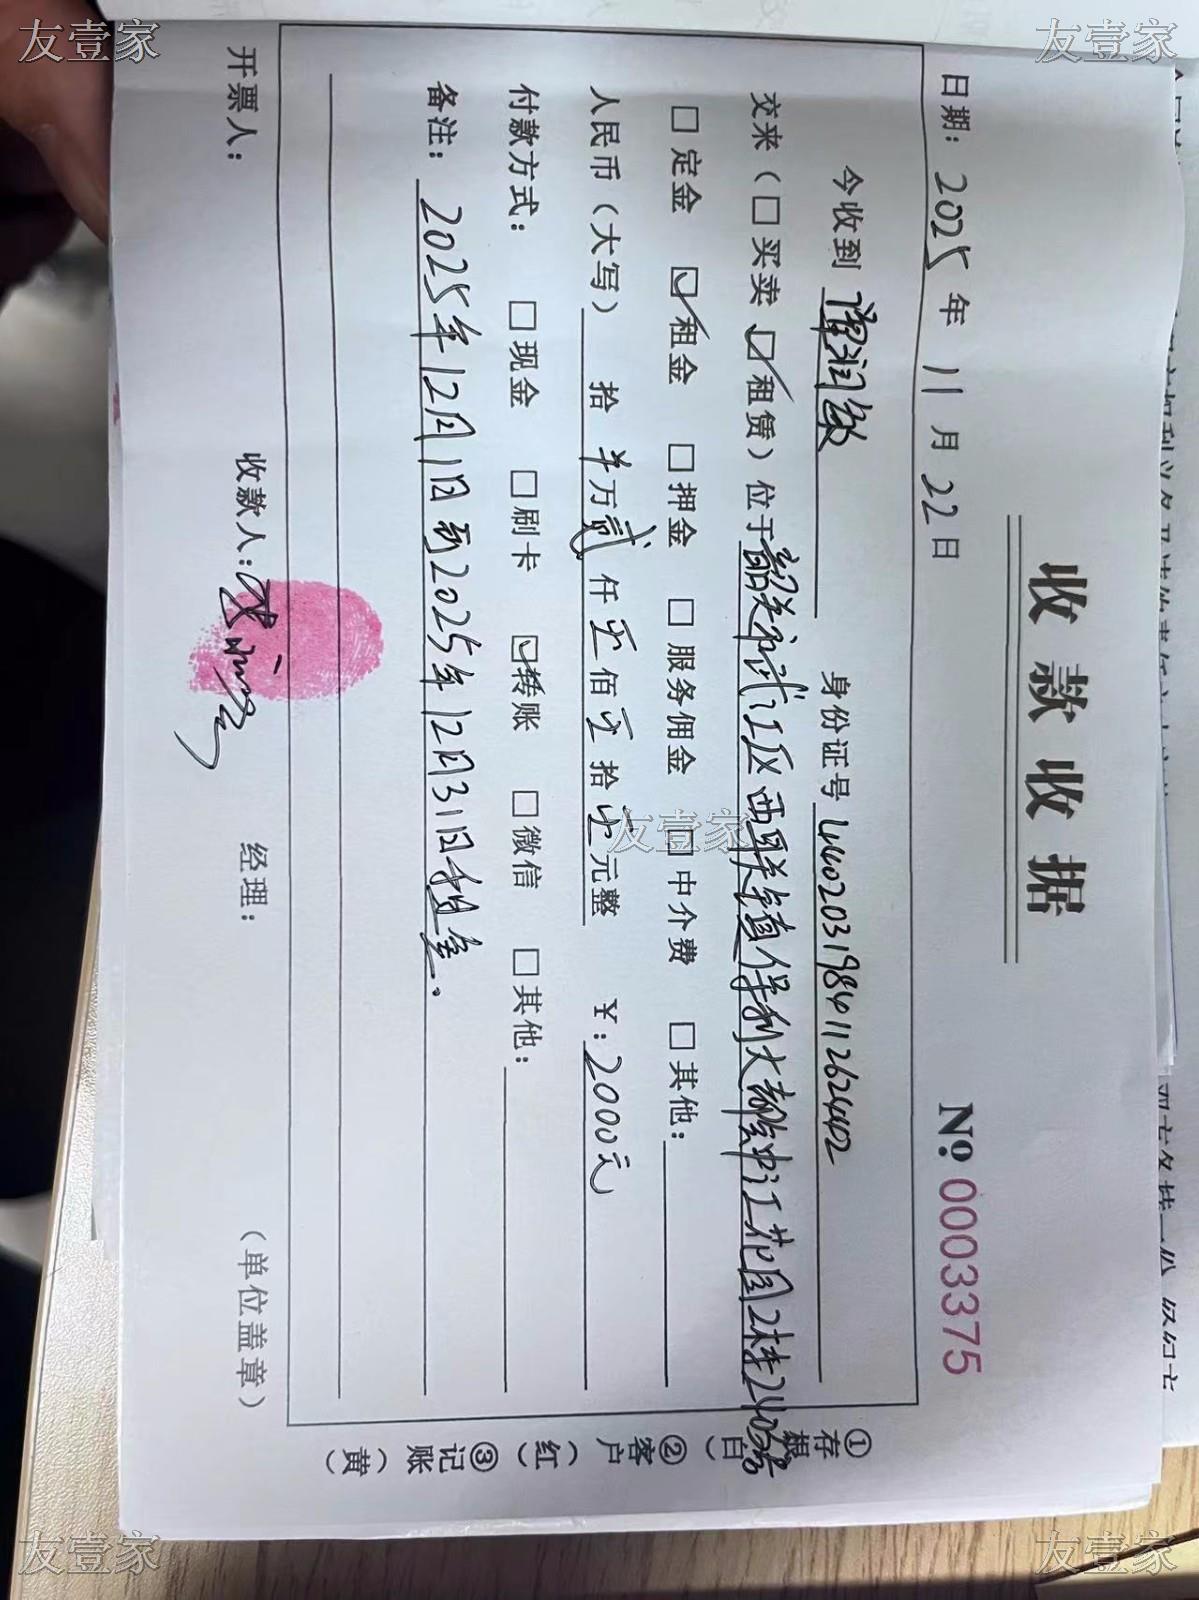 收款收据
№ 0003375
日期：2025年 11月 22日
今收到 身份证号 440203198411262442
交来（□买卖 ☑租赁）位于韶关市武江区西联镇保利大都会中江花园2栋2403号
□定金 ☑租金 □押金 □服务佣金 □中介费 □其他：
人民币（大写） 拾 万贰仟 佰 拾 元整 ¥：2000元
付款方式： □现金 □刷卡 ☑转账 □微信 □其他：
备注：2025年12月1日到2025年12月31日租金．
开票人： 收款人： 经理： （单位盖章）
①存根（白） ②客户（红） ③记账（黄）
友壹家
友壹家
友壹家
友壹家
友壹家